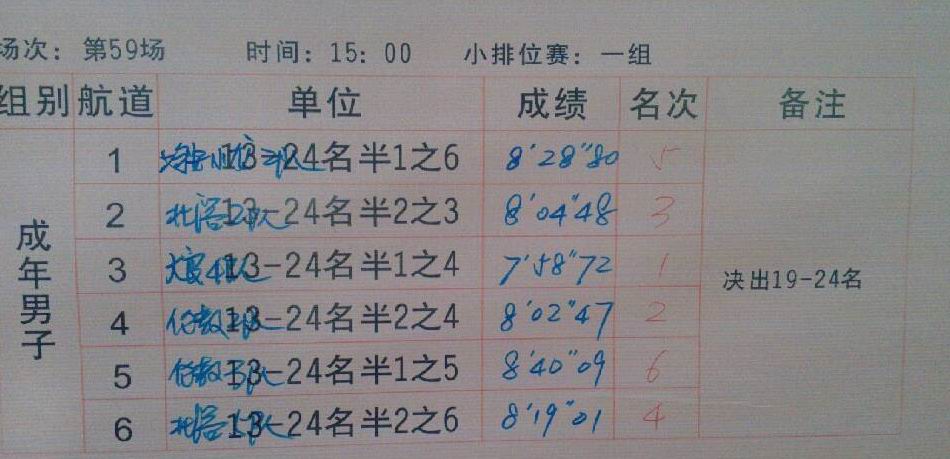 场次： 第59场 时间：15：00 小排位赛：一组
组别 航道 单位 成绩 名次 备注
成年男子
1 13-24名半1之6 8'28"80 5
2 13-24名半2之3 8'04"48 3
3 13-24名半1之4 7'58"72 1
4 13-24名半2之4 8'02"47 2
5 13-24名半1之5 8'40"09 6
6 13-24名半2之6 8'19"01 4
决出19-24名